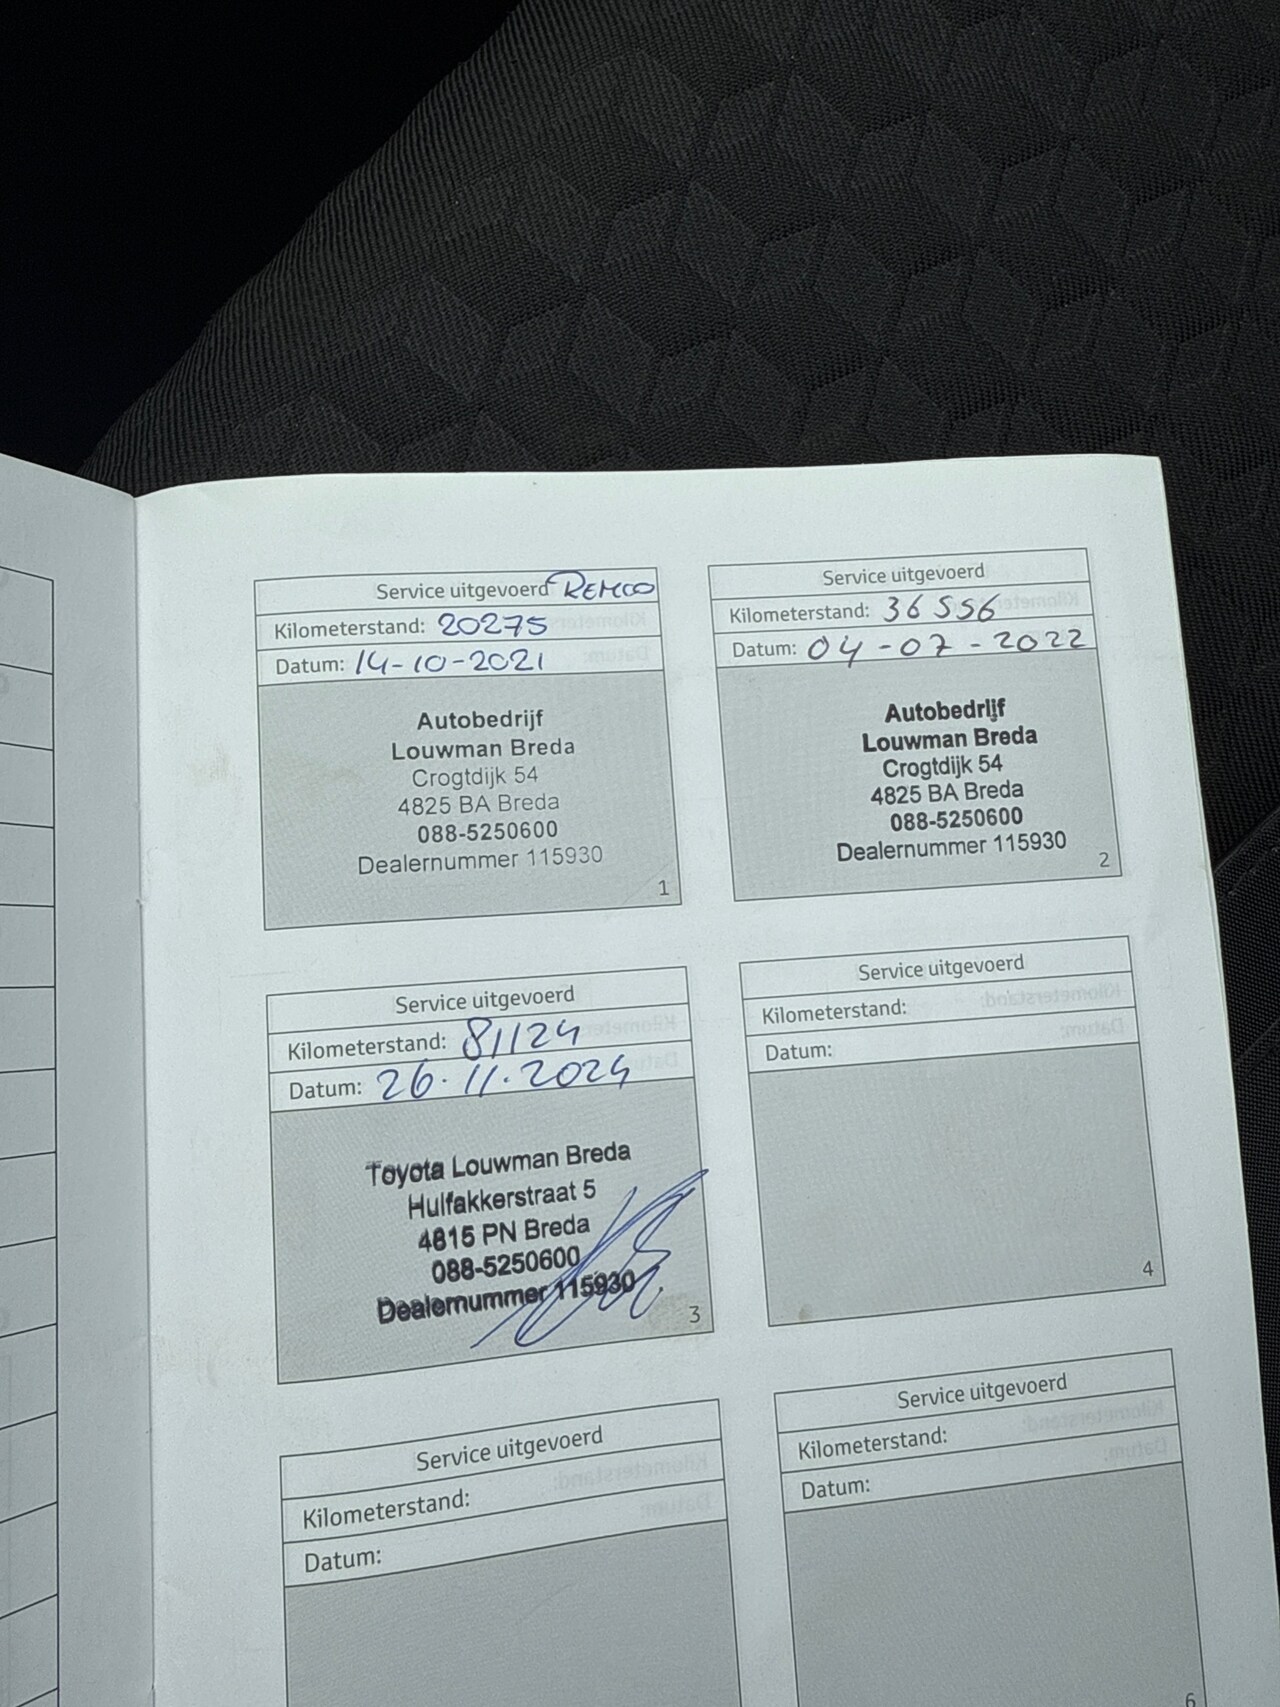 Service uitgevoerd REMCO
Kilometerstand: 20275
Datum: 14-10-2021
Autobedrijf
Louwman Breda
Crogtdijk 54
4825 BA Breda
088-5250600
Dealernummer 115930
1
Service uitgevoerd
Kilometerstand: 36 556
Datum: 04-07-2022
Autobedrijf
Louwman Breda
Crogtdijk 54
4825 BA Breda
088-5250600
Dealernummer 115930
2
Service uitgevoerd
Kilometerstand: 81124
Datum: 26.11.2024
Toyota Louwman Breda
Hulfakkerstraat 5
4815 PN Breda
088-5250600
Dealernummer 115930
3
Service uitgevoerd
Kilometerstand:
Datum:
4
Service uitgevoerd
Kilometerstand:
Datum:
Service uitgevoerd
Kilometerstand:
Datum:
6